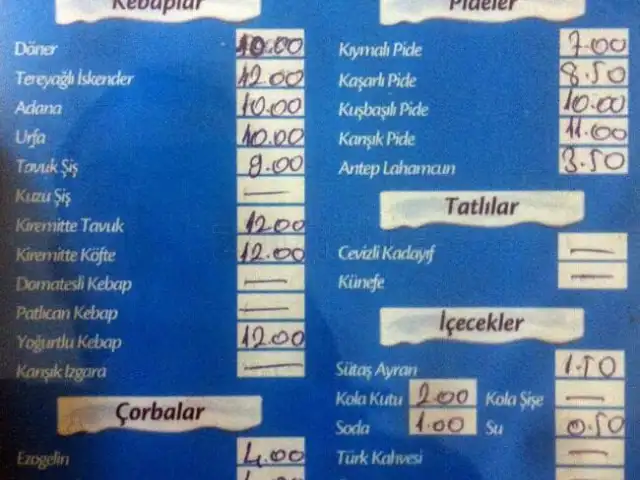 Kebaplar
Döner 10.00
Tereyağlı İskender 12.00
Adana 10.00
Urfa 10.00
Tavuk Şiş 9.00
Kuzu Şiş —
Kiremitte Tavuk 12.00
Kiremitte Köfte 12.00
Domatesli Kebap —
Patlıcan Kebap —
Yoğurtlu Kebap 12.00
Karışık Izgara —
Çorbalar
Ezogelin 4.00
Pideler
Kıymalı Pide 7.00
Kaşarlı Pide 8.50
Kuşbaşılı Pide 10.00
Karışık Pide 11.00
Antep Lahamcun 3.50
Tatlılar
Cevizli Kadayıf —
Künefe —
İçecekler
Sütaş Ayran 1.50
Kola Kutu 2.00 Kola Şişe —
Soda 1.00 Su 0.50
Türk Kahvesi —